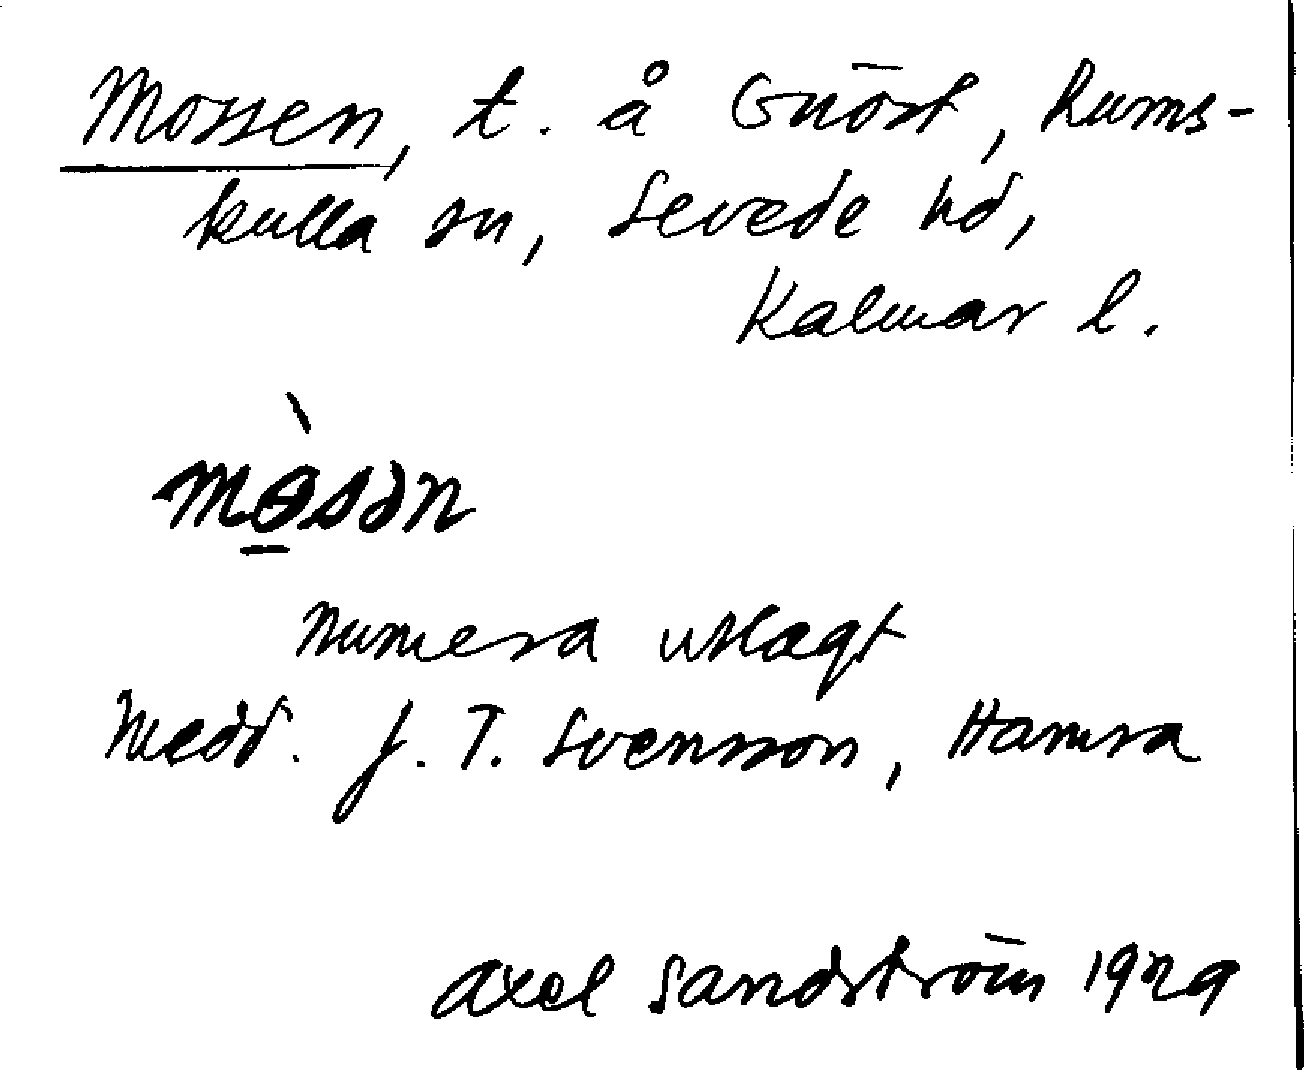 Mossen, t. å Gnöst, Rums-
kulla sn, Sevede hd,
Kalmar l.
mòsən
numera utlagt
Medd. J. T. Svensson, Hamra
Axel Sandström 1929